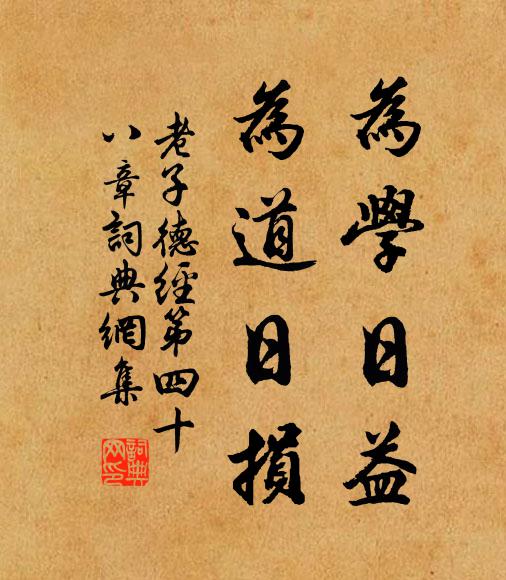 為學日益
為道日損
老子德經第四十
八章詞典網集
詞典
网印